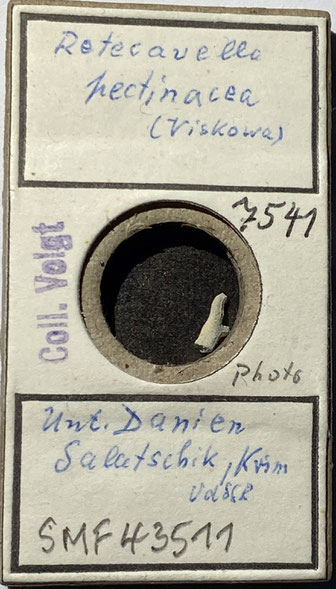 Retecavella
pectinacea
(Viskowa)
7541
Coll. Voigt
Photo
Unt. Danien
Salatschik, Krim
UdSSR
SMF 43511